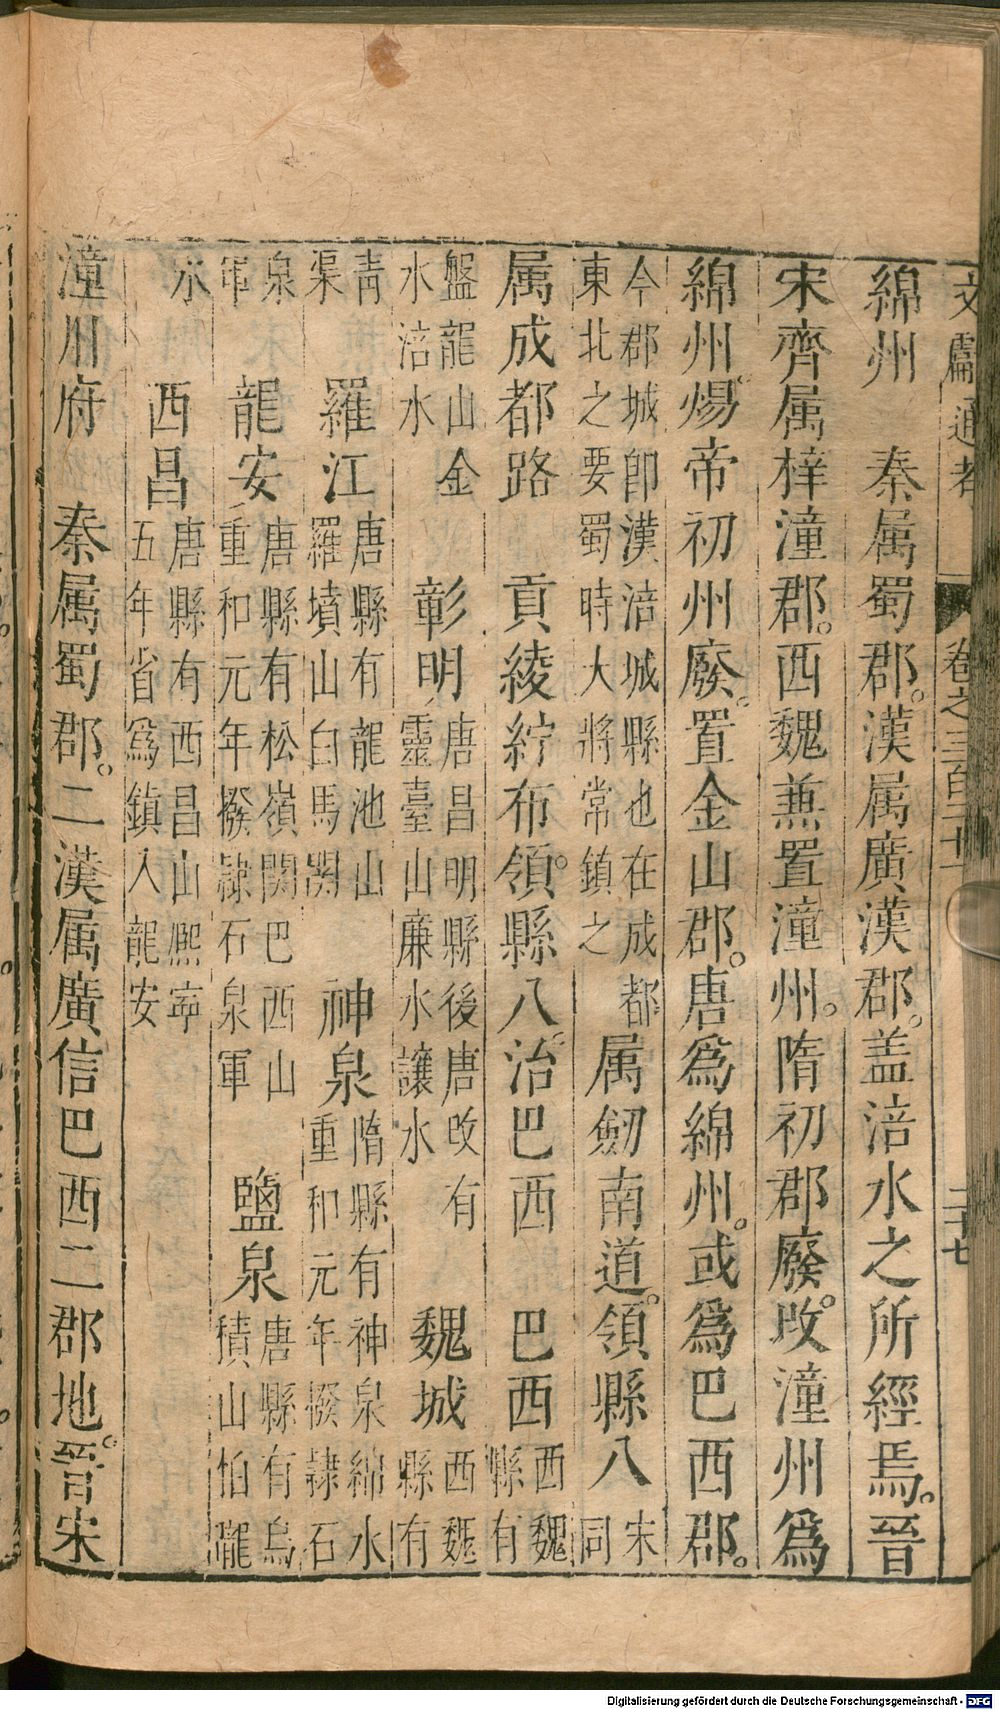 文獻通考 卷之三百二十一 二十七
綿州 秦属蜀郡。漢属廣漢郡。盖涪水之所經焉。晉
宋齊属梓潼郡。西魏兼置潼州。隋初郡廢。改潼州為
綿州。煬帝初州廢。置金山郡。唐為綿州。或為巴西郡。
今郡城即漢涪城縣也在成都
東北之要蜀時大將常鎮之
属劒南道。領縣八
宋
同
属成都路 貢綾紵布。領縣八。治巴西 巴西
西魏
縣有
盤龍山金
水涪水
彰明
唐昌明縣後唐改有
靈臺山廉水讓水
魏城
西魏
縣有
青
渠
羅江
唐縣有龍池山
羅墳山白馬關
神泉
隋縣有神泉綿水
重和元年撥隸石
泉
軍
龍安
唐縣有松嶺關巴西山
重和元年撥隸石泉軍
鹽泉
唐縣有烏
積山怕隴
水
西昌
唐縣有西昌山熈寕
五年省爲鎮入龍安
潼川府 秦属蜀郡。二漢属廣信巴西二郡地。晉宋
Digitalisierung gefördert durch die Deutsche Forschungsgemeinschaft - DFG